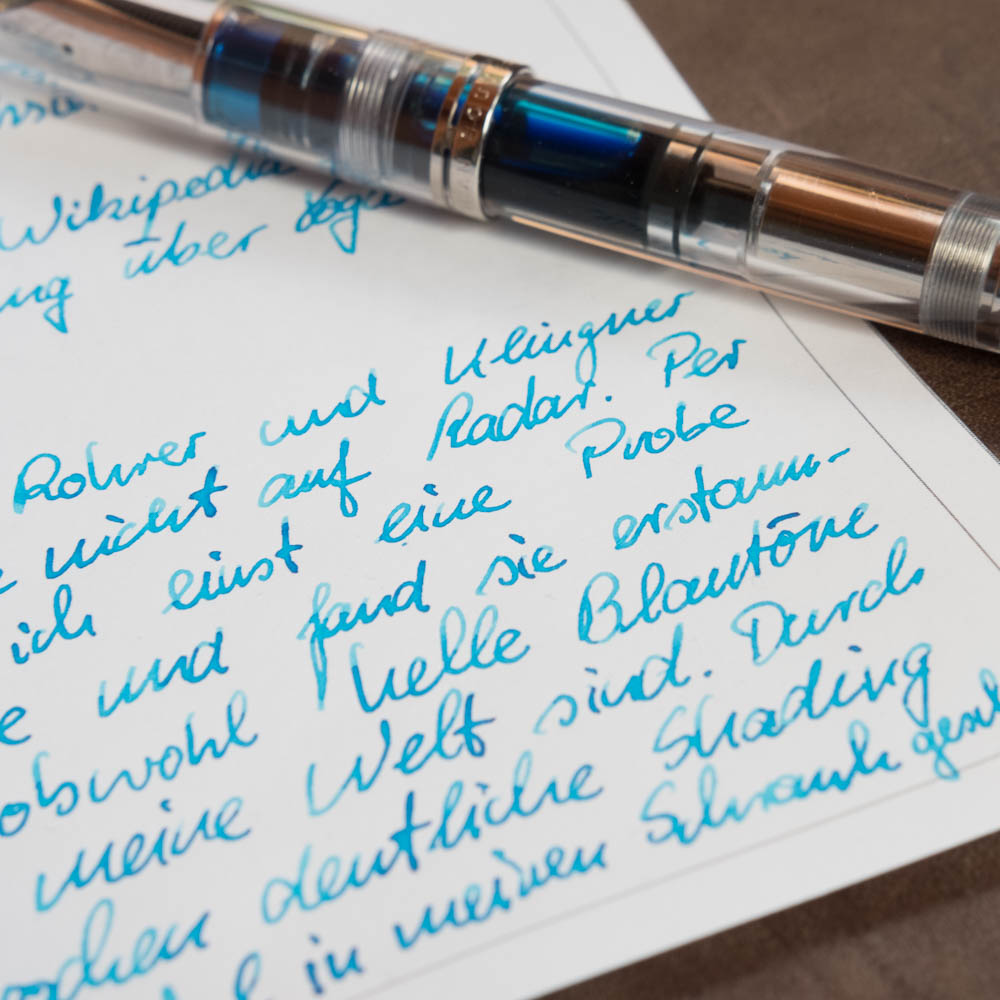 Wikipedia
über Yoga
Rohrer und Klingner
nicht auf Radar. Per
ich einst eine Probe
e und fand sie erstaun-
obwohl helle Blautöne
meine Welt sind. Durch
deutliche Shading
in meinen Schrank gesch